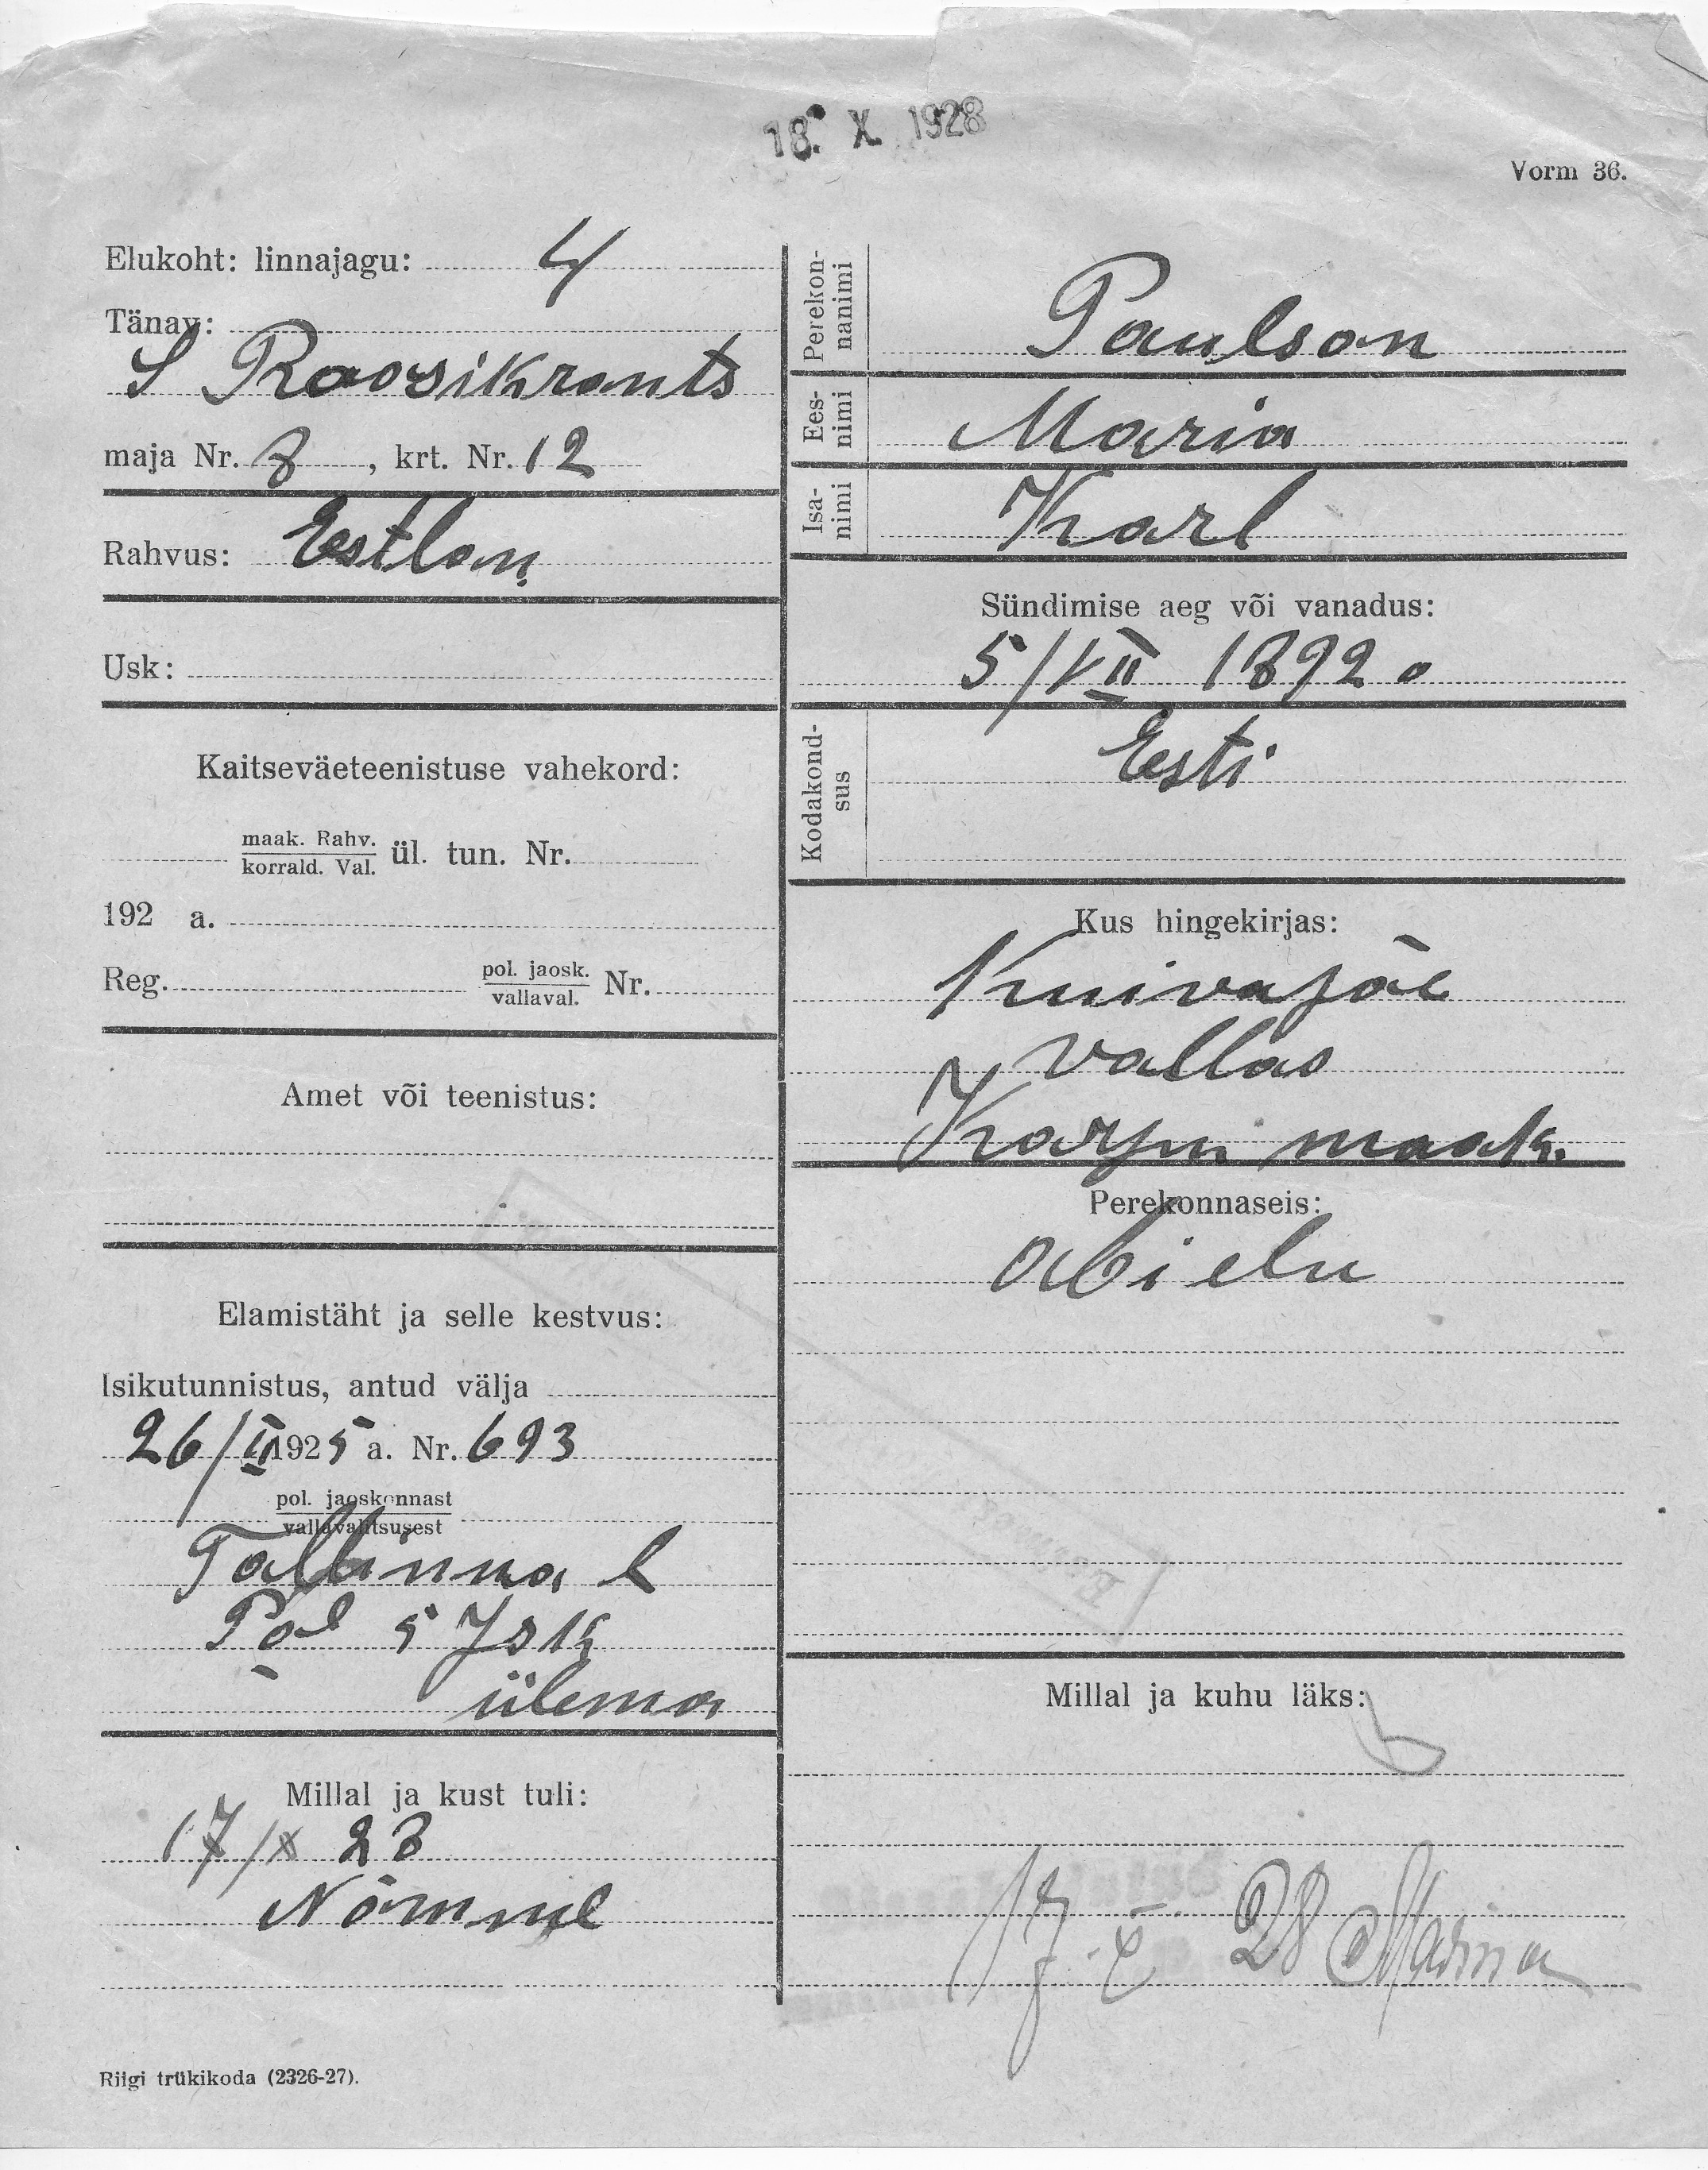 18. X 1928
Vorm 36.
Elukoht: linnajagu: 4
Tänav:
S Roosikrants
maja Nr. 8, krt. Nr. 12
Rahvus: Estlan
Usk:
Kaitseväeteenistuse vahekord:
maak. Rahv.
korrald. Val. ül. tun. Nr.
192 a.
Reg. pol. jaosk.
vallaval. Nr.
Amet või teenistus:
Elamistäht ja selle kestvus:
Isikutunnistus, antud välja
26/II 1925 a. Nr. 693
pol. jaoskonnast
vallavalitsusest
Tallinna l
Pol 5 Jsk
ülema
Millal ja kust tuli:
17/X 28
Nõmme
Riigi trükikoda (2326-27).
Perekon-
nanimi
Paulson
Ees-
nimi
Maria
Isa-
nimi
Karl
Sündimise aeg või vanadus:
5/VII 1892
Kodakond-
sus
Eesti
Kus hingekirjas:
Kuivajõe
vallas
Harju maak.
Perekonnaseis:
abielu
Millal ja kuhu läks:
17. X 28